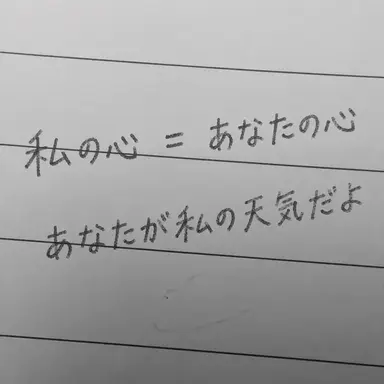 私の心 = あなたの心
あなたが私の天気だよ